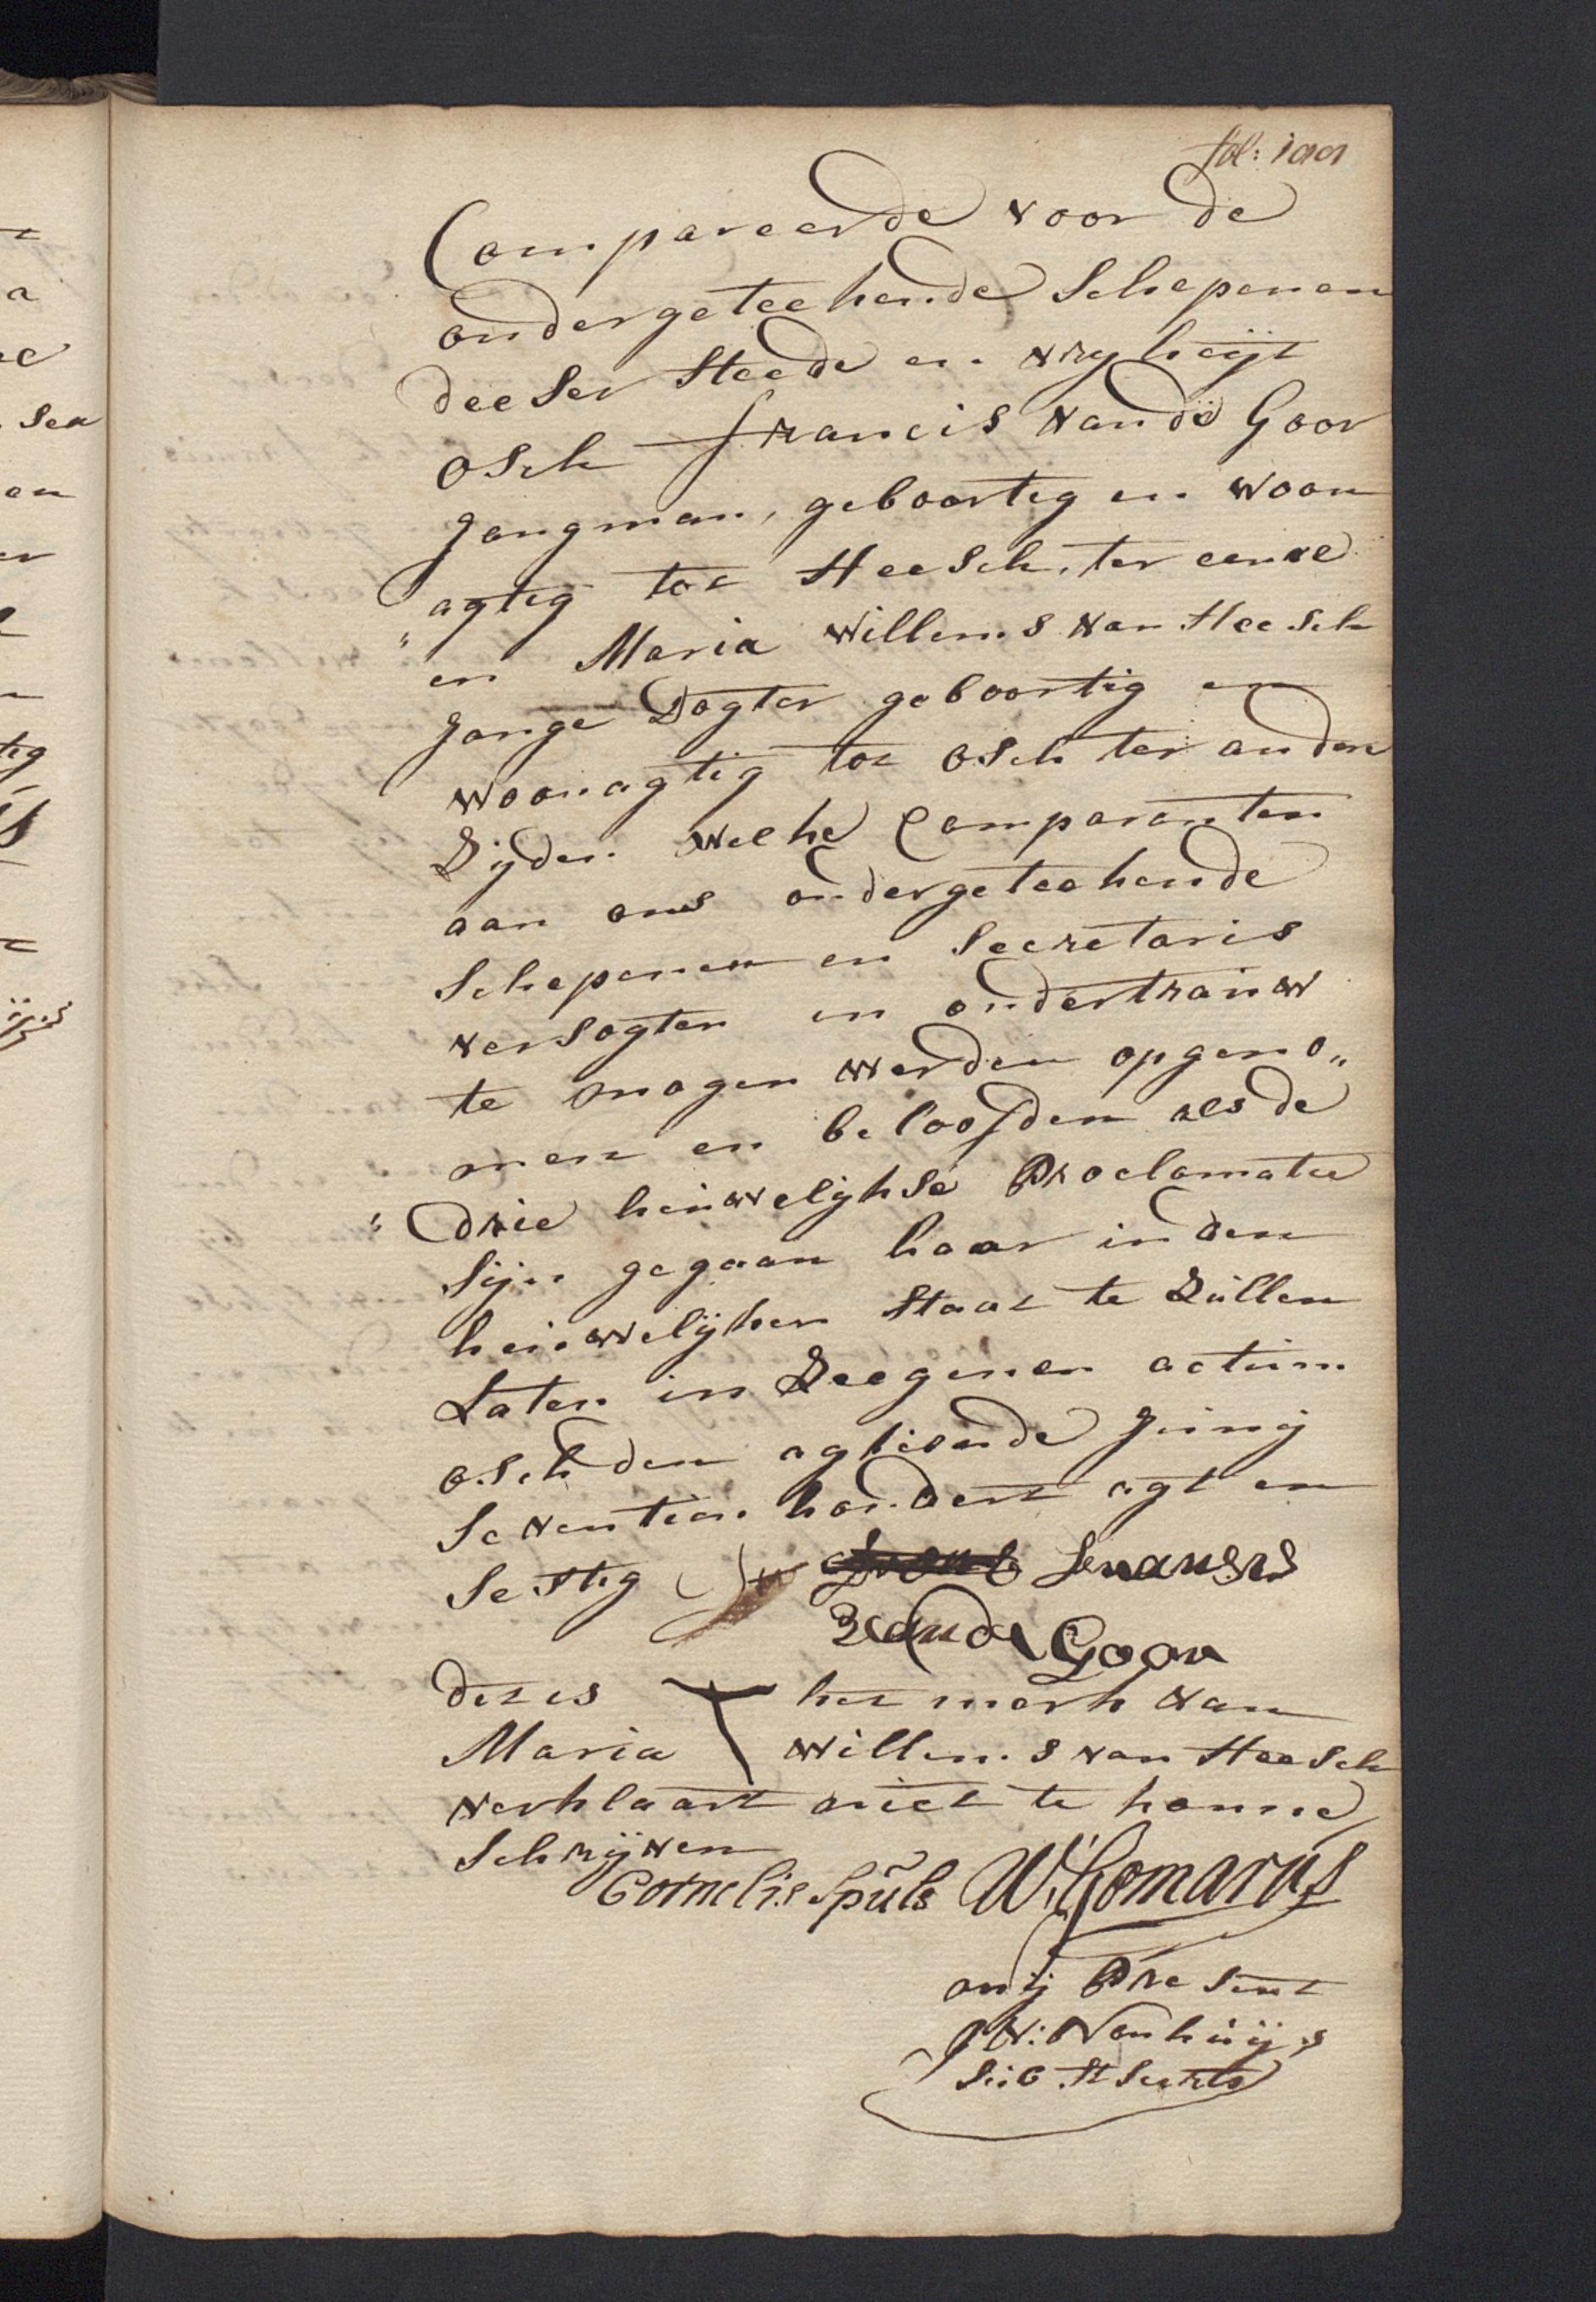 fol:
Compareerde voor de
ondergeteekende Schepenen
deeser Steede en vryheijt
Osch francis van de Goor
jongman, geboortig en woon
"agtig tot Heesch, ter eenre
en Maria Willems van Heesch
jonge Dogter geboortig en
woonagtig tot Osch ter andere
Zijden welke Comparanten
aan ons ondergeteekende
Schepenen en Secretaris
versogten in ondertrouw
te mogen werden opgeno„
men en beloofden als de
drie huuwelijkse Proclamatie
Sijn gegaan haar in den
huuwelijken Staat te Zullen
Laten in Zeegenen actum
osch den agtiende Junij
Seventien hondert agt en
Sestig fransis
vande Goor
dit is het merk van
Maria Willems van Heesch
verklaart niet te konne
Schrijven
Cornelis Spüls W: Gomarus
mij Present
Van huijs
Subst Secrts